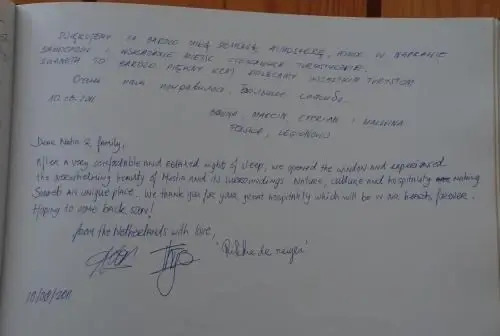 DZIĘKUJEMY ZA BARDZO MIŁĄ DOMOWĄ ATMOSFERĘ, POMOC W NAPRAWIE
SAMOCHODU I WSKAZANIE MIEJSC CIEKAWYCH TURYSTYCZNIE.
SVANETIA TO BARDZO PIĘKNY KRAJ POLECAMY WSZYSTKIM TURYSTOM
Очень нам понравилось, большое спасибо.
10.08.2011
MARCIN, CYPRIAN I MALWINA
POLSKA, LEGIONOWO
Dear Natia & family,
After a very comfortable and extended night of sleep, we opened the window and experienced
the overwhelming beauty of Mestia and its surroundings. Nature, culture and hospitality making
Svaneti an unique place. We thank you for your great hospitality which will be in our hearts forever.
Hoping to come back soon!
from the Netherlands with love,
10/08/2011